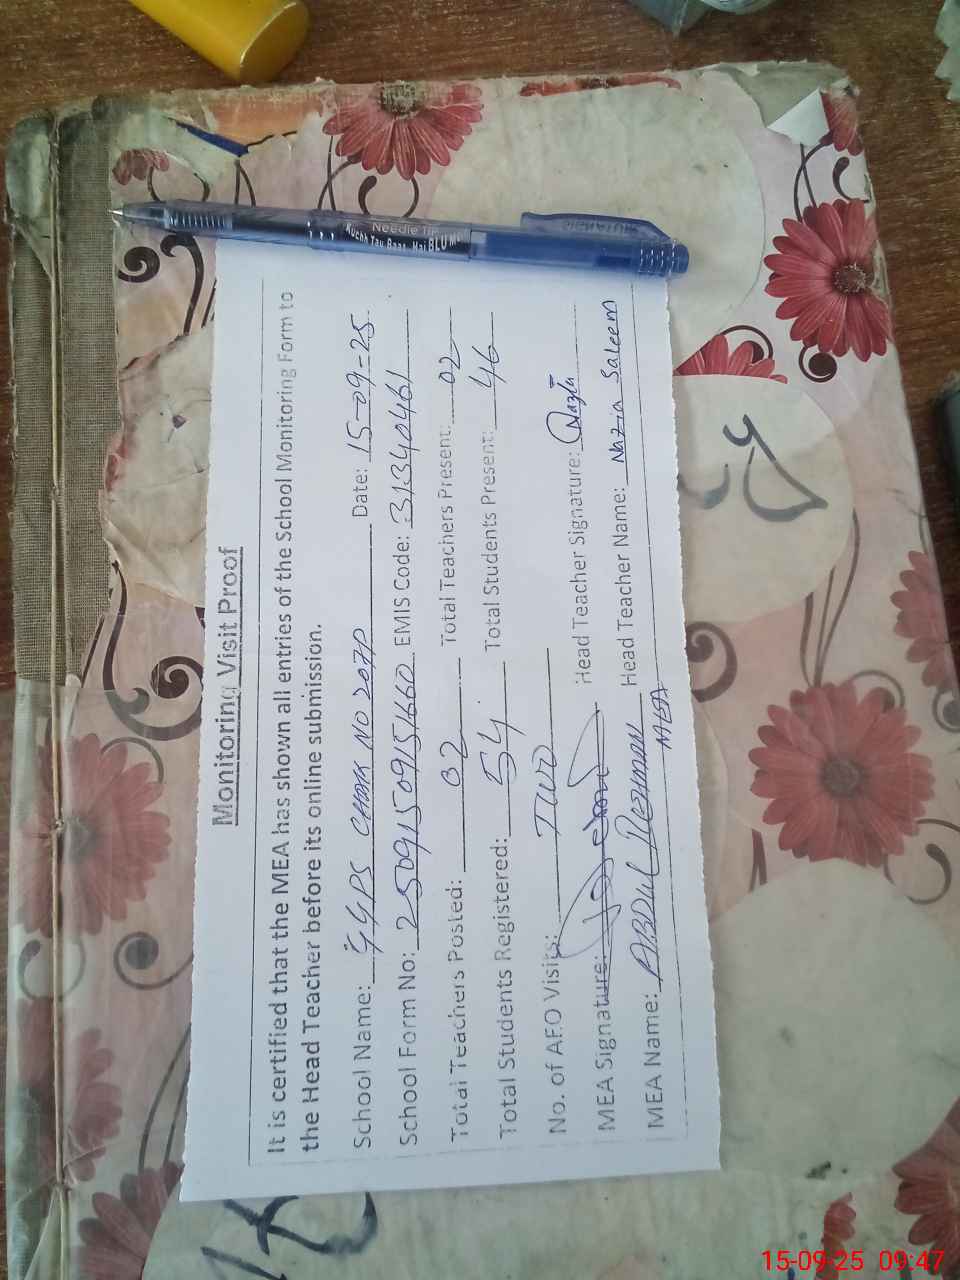 Needle Tip
Kuchh Tau Baat Hai BLU Mein
Monitoring Visit Proof
It is certified that the MEA has shown all entries of the School Monitoring Form to
the Head Teacher before its online submission.
School Name: GGPS CHAK NO 207P Date: 15-09-25
School Form No: 25091509151660 EMIS Code: 31340461
Total Teachers Posted: 02 Total Teachers Present: 02
Total Students Registered: 54 Total Students Present: 46
No. of AEO Visits: TWO
MEA Signature: Head Teacher Signature: Nazia
MEA Name: ABDUL REHMAN Head Teacher Name: Nazia Saleem
MEA
15-09-25 09:47